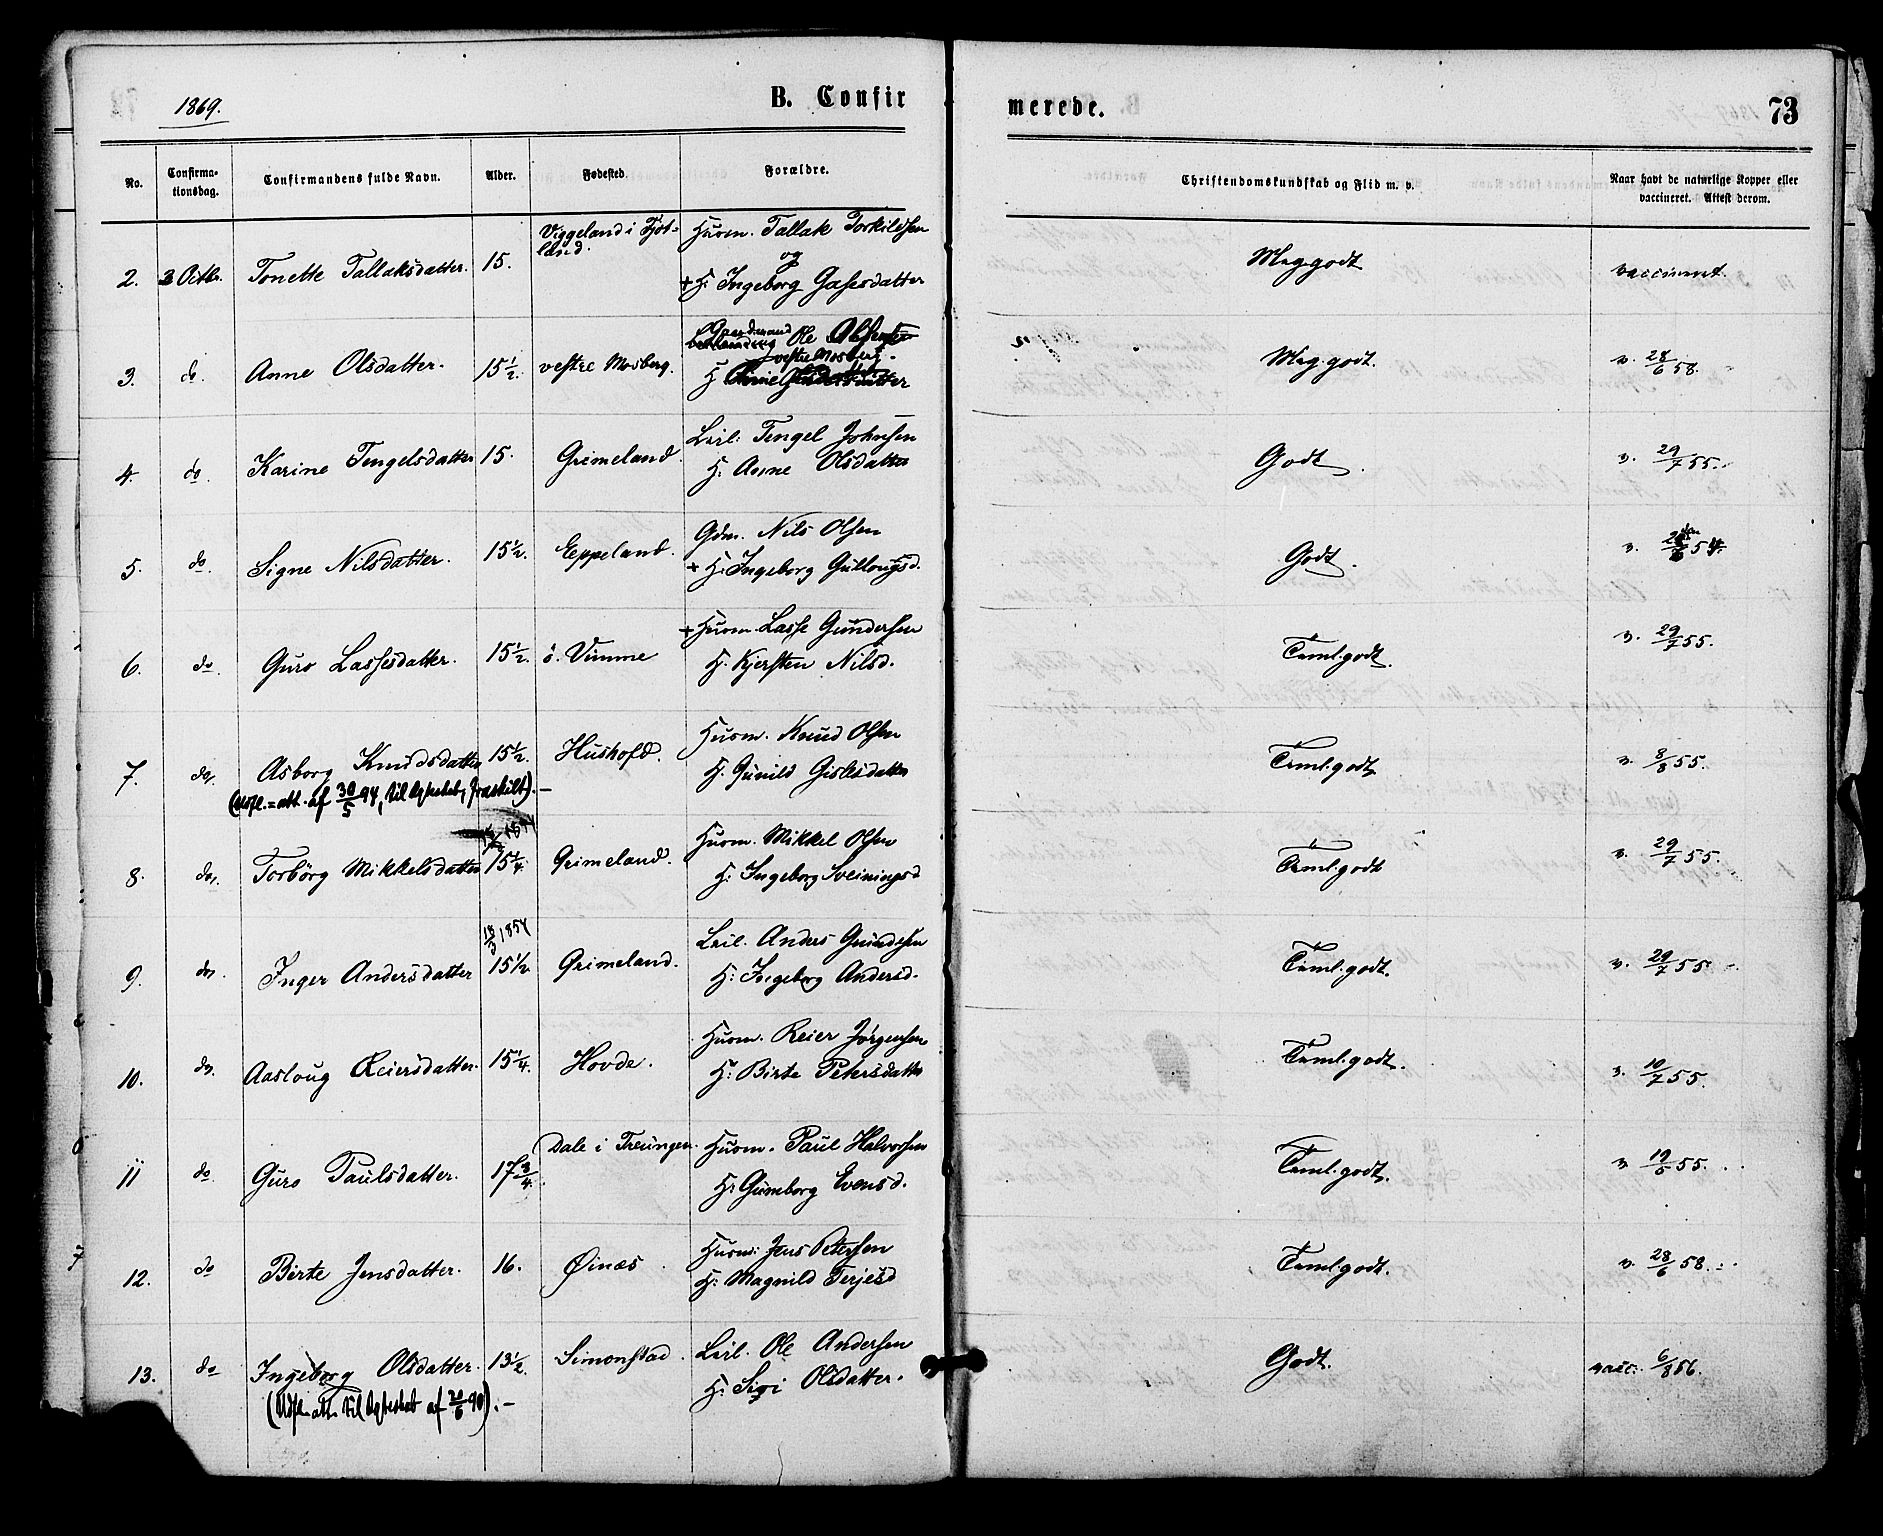 1869.
B. Confirmerede.
73
No.
Confirma-
tionsdag.
Confirmandens fulde Navn.
Alder.
Fødested.
Forældre.
Christendomskundskab og Flid m. v.
Naar havt de naturlige Kopper eller
vaccineret. Attest derom.
2. 3 Octb. Tonette Tallaksdatter. 15. Viggeland i Fjot-
land. Huusm. Tallak Torkildsen
og
+ H. Ingeborg Gasesdatter Meg. godt vaccineret.
3. do. Anne Olsdatter. 15½. vestre Mosberg. Gaardmand Ole
vestre Mosberg.
H. Meg. godt. v. 28/6 58.
4. do. Karine Tengelsdatter 15. Grimeland. Leil. Tengel Johnsen
H. Anne Olsdatter Godt. v. 29/7 55.
5. do. Signe Nilsdatter. 15½. Eppeland. Gdm. Nils Olsen
+ H. Ingeborg Gullougsd. Godt. v. 54.
6. do. Guro Lassesdatter. 15½. ö. Vimme + Huusm. Lasse Gundersen
H. Kjersten Nilsd. Teml. godt. v. 29/7 55.
7. do. Asborg Knudsdatter 15½. Hushofd. Huusm. Knud Olsen
H. Gunild Gislesdatter Teml. godt v. 8/8 55.
(Udfl.=att. af 30/5 94, til Ægteskab, fraskilt). –
8. do. Torbörg Mikkelsdatter 1854 15¼. Grimeland. Huusm. Mikkel Olsen
H. Ingeborg Sveiningsd Teml. godt v. 29/7 55.
9. do. Inger Andersdatter 18/3 1854 15½ Grimeland. Leil. Anders Gundersen
H. Ingeborg Andersd. Teml. godt. v. 29/7 55
10. do. Aasloug Reiersdatter. 15¼. Hovde. Huusm. Reier Jørgensen
H. Birte Petersdatter Teml. godt. v. 10/7 55.
11 do. Guro Paulsdatter. 17¾. Dale i Treungen. Huusm. Paul Halvorsen
H. Gunborg Evensd. Teml. godt. v. 19/6 55.
12. do Birte Jensdatter. 16. Øinæs. Huusm. Jens Petersen
H. Magnild Terjesd Teml. godt. v. 28/6 58.
13. do Ingeborg Olsdatter. 13½. Simonstad. Leil. Ole Andersen
H. Sigi Olsdatter. Godt. vacc. 6/8 56.
(Udfl. att. til Ægteskab af 90). –